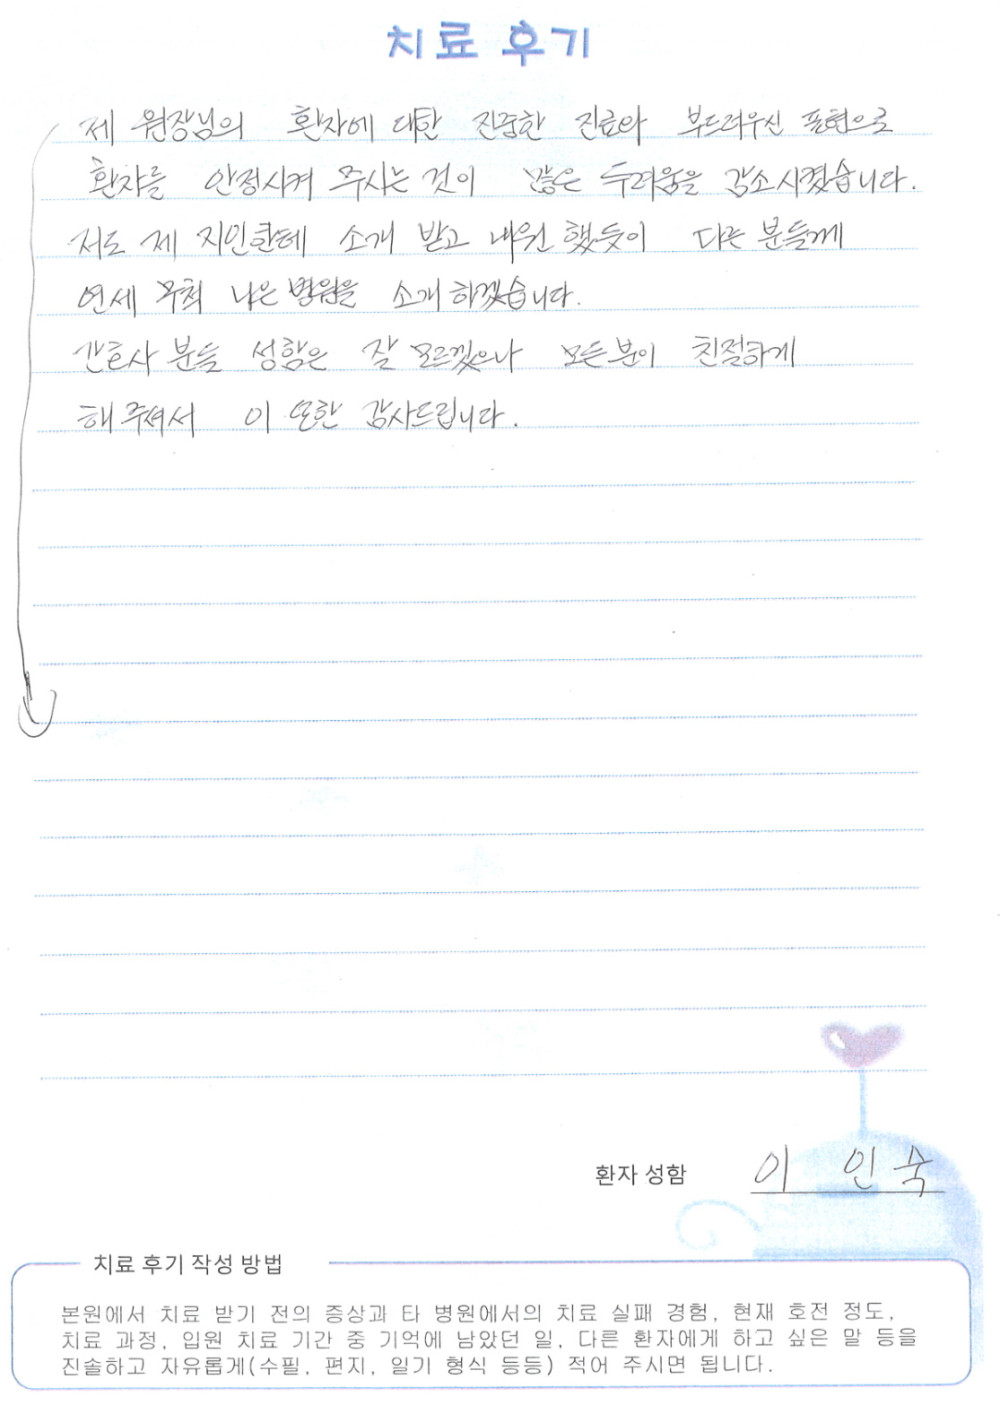 치료 후기
제 원장님의 환자에 대한 진중한 진료와 부드러우신 표현으로
환자를 안정시켜 주시는 것이 많은 두려움을 감소시켰습니다.
저도 제 지인한테 소개 받고 내원 했듯이 다른 분들께
연세 무척 나은 병원을 소개 하겠습니다.
간호사 분들 성함은 잘 모르겠으나 모든분이 친절하게
해주셔서 이 또한 감사드립니다.
환자 성함 이 인숙
치료 후기 작성 방법
본원에서 치료 받기 전의 증상과 타 병원에서의 치료 실패 경험, 현재 호전 정도,
치료 과정, 입원 치료 기간 중 기억에 남았던 일, 다른 환자에게 하고 싶은 말 등을
진솔하고 자유롭게(수필, 편지, 일기 형식 등등) 적어 주시면 됩니다.